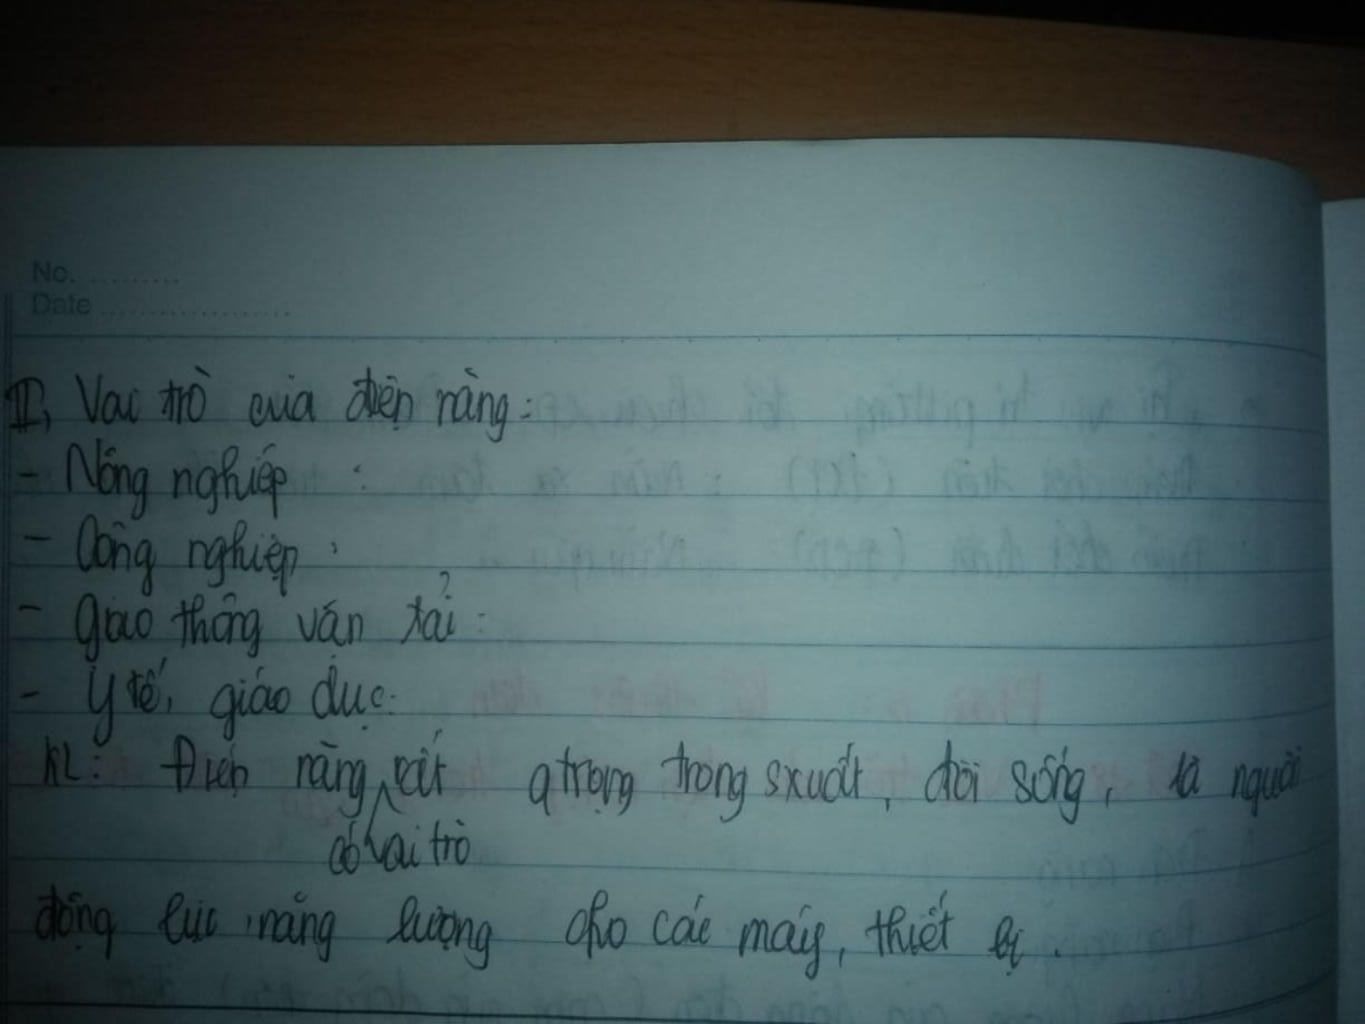 No. .........
Date ...................
II, Vai trò của điện năng:
- Nông nghiệp :
- Công nghiệp :
- giao thông vận tải :
- y tế, giáo dục:
KL: Điện năng rất qtrọng trong sxuất, đời sống, là nguồn
có vai trò
động lực, năng lượng cho các máy, thiết bị.